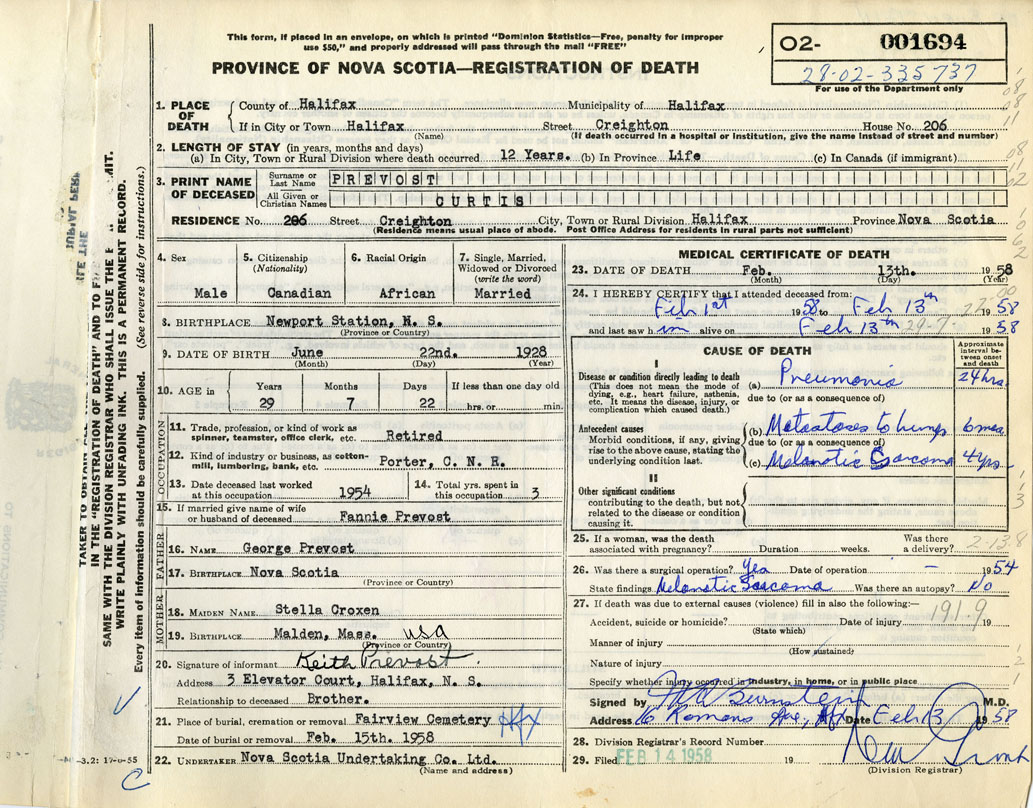 This form, if placed in an envelope, on which is printed "Dominion Statistics—Free, penalty for improper
use $50," and properly addressed will pass through the mail "FREE"
PROVINCE OF NOVA SCOTIA—REGISTRATION OF DEATH
02- 001694
28-02-335737
For use of the Department only
1. PLACE OF DEATH
County of Halifax Municipality of Halifax
If in City or Town Halifax Street Creighton House No. 206
(Name) (If death occurred in a hospital or institution, give the name instead of street and number)
2. LENGTH OF STAY (in years, months and days)
(a) In City, Town or Rural Division where death occurred 12 Years. (b) In Province Life (c) In Canada (if immigrant)
3. PRINT NAME OF DECEASED
Surname or Last Name PREVOST
All Given or Christian Names CURTIS
RESIDENCE No. 206 Street Creighton City, Town or Rural Division Halifax Province Nova Scotia
(Residence means usual place of abode. Post Office Address for residents in rural parts not sufficient)
4. Sex
Male
5. Citizenship
(Nationality)
Canadian
6. Racial Origin
African
7. Single, Married,
Widowed or Divorced
(write the word)
Married
8. BIRTHPLACE Newport Station, N. S.
(Province or Country)
9. DATE OF BIRTH June 22nd. 1928
(Month) (Day) (Year)
10. AGE in Years Months Days If less than one day old
29 7 22 hrs. or min.
OCCUPATION
11. Trade, profession, or kind of work as
spinner, teamster, office clerk, etc. Retired
12. Kind of industry or business, as cotton-
mill, lumbering, bank, etc. Porter, C. N. R.
13. Date deceased last worked
at this occupation 1954
14. Total yrs. spent in
this occupation 3
15. If married give name of wife
or husband of deceased Fannie Prevost
FATHER
16. NAME George Prevost
17. BIRTHPLACE Nova Scotia
(Province or Country)
MOTHER
18. MAIDEN NAME Stella Croxen
19. BIRTHPLACE Malden, Mass. USA
(Province or Country)
20. Signature of informant Keith Prevost
Address 3 Elevator Court, Halifax, N. S.
Relationship to deceased Brother.
21. Place of burial, cremation or removal Fairview Cemetery Hfx
Date of burial or removal Feb. 15th. 1958
22. UNDERTAKER Nova Scotia Undertaking Co. Ltd.
(Name and address)
MEDICAL CERTIFICATE OF DEATH
23. DATE OF DEATH Feb. 13th. 1958
(Month) (Day) (Year)
24. I HEREBY CERTIFY that I attended deceased from:
Feb 1st 1958 to Feb 13th 1958
and last saw him alive on Feb 13th 1958
CAUSE OF DEATH
Approximate interval between onset and death
I
Disease or condition directly leading to death
(This does not mean the mode of
dying, e.g., heart failure, asthenia,
etc. It means the disease, injury, or
complication which caused death.)
(a) Pneumonia 24 hrs.
due to (or as a consequence of)
Antecedent causes
Morbid conditions, if any, giving
rise to the above cause, stating the
underlying condition last.
(b) Metastases to lungs 6 mos.
due to (or as a consequence of)
(c) Melanotic Sarcoma 4 yrs.
II
Other significant conditions
contributing to the death, but not
related to the disease or condition
causing it.
25. If a woman, was the death
associated with pregnancy? Duration weeks. Was there
a delivery?
26. Was there a surgical operation? Yes Date of operation – 1954
State findings Melanotic Sarcoma Was there an autopsy? No
27. If death was due to external causes (violence) fill in also the following:—
191.9
Accident, suicide or homicide? Date of injury 19
(State which)
Manner of injury
(How sustained)
Nature of injury
Specify whether injury occurred in industry, in home, or in public place
Signed by Bernstein M.D.
Address 16 Romans Ave, Hfx Date Feb 13 1958
28. Division Registrar's Record Number
29. Filed FEB 14 1958 19
(Division Registrar)
IN THE "REGISTRATION OF DEATH" AND TO
SAME WITH THE DIVISION REGISTRAR WHO SHALL ISSUE THE
WRITE PLAINLY WITH UNFADING INK. THIS IS A PERMANENT RECORD.
Every item of information should be carefully supplied. (See reverse side for instructions.)